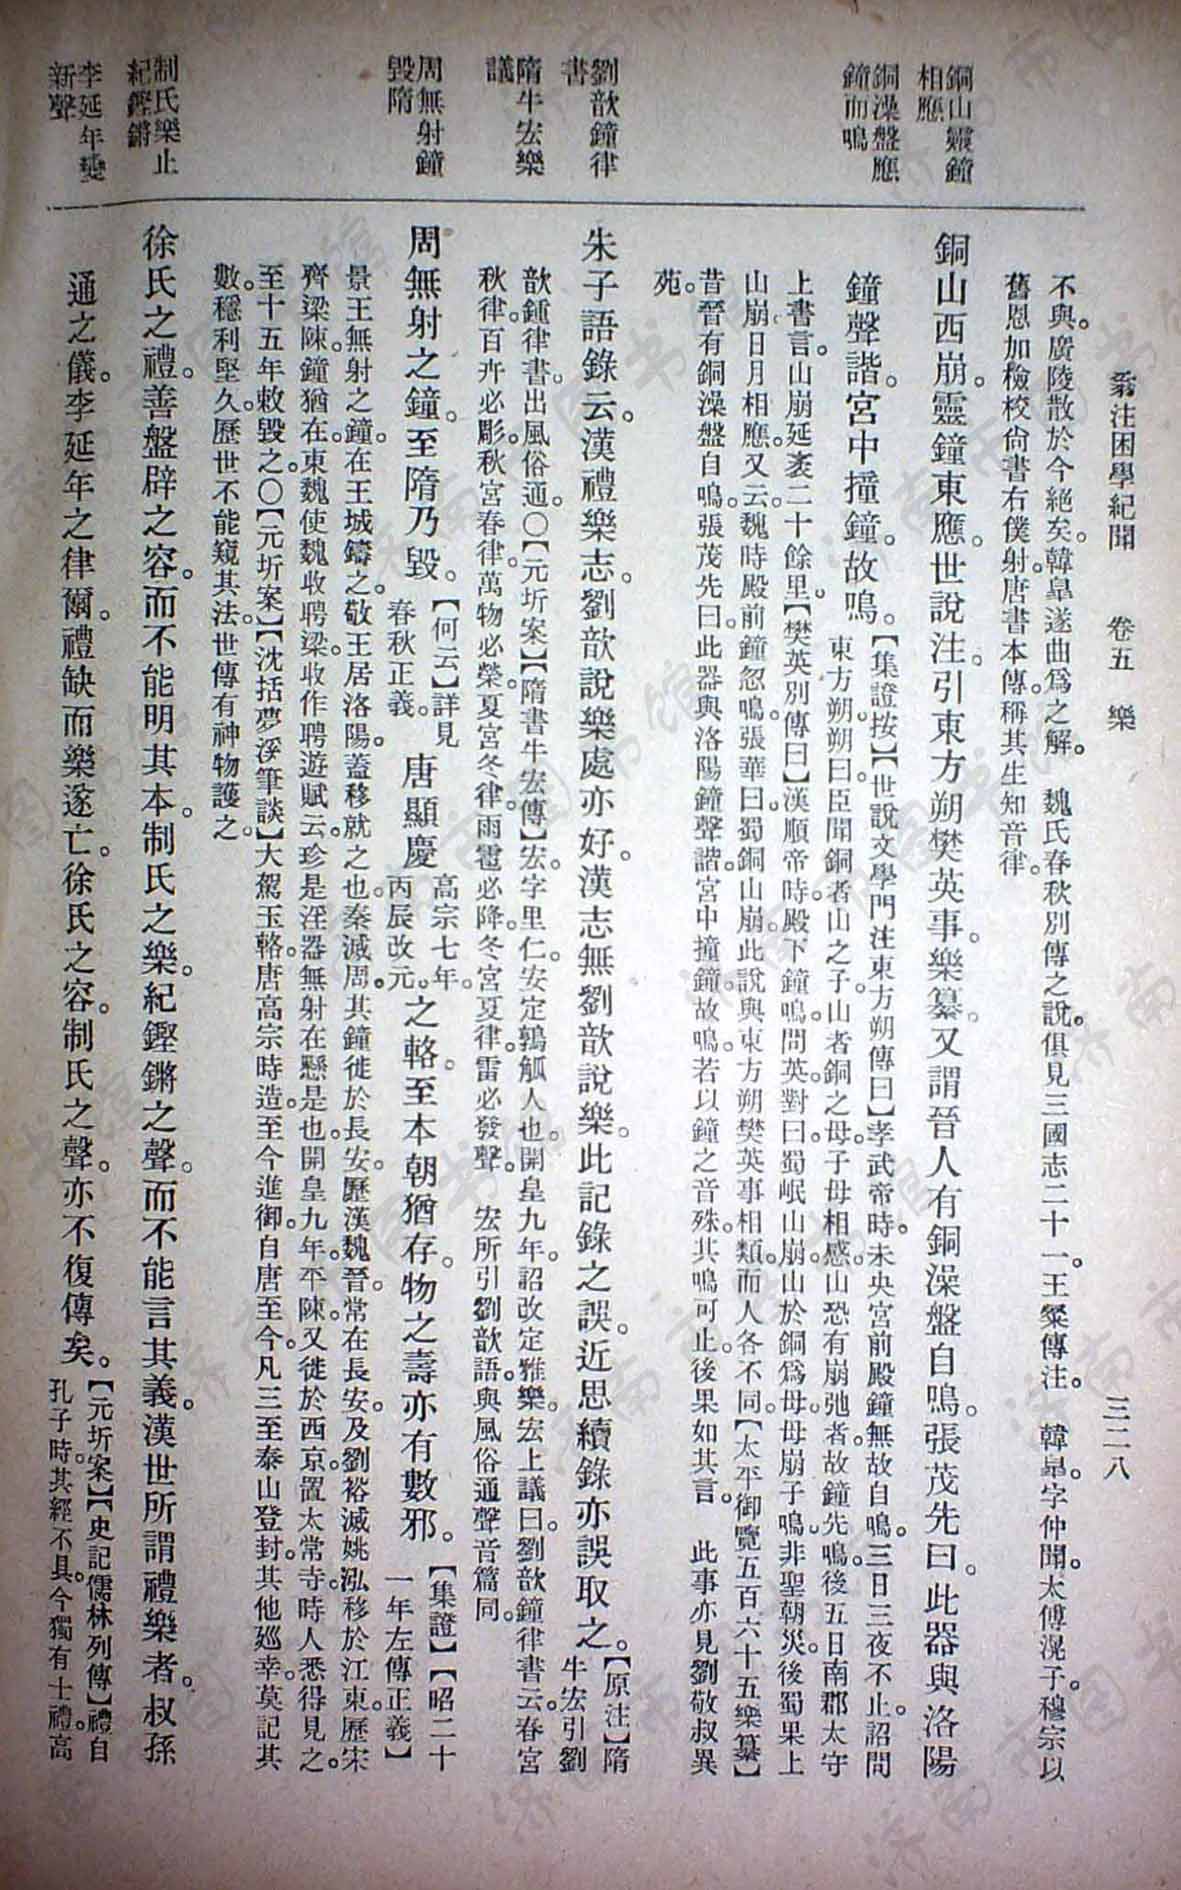 翁注困學紀聞　卷五　樂　三二八
不與。廣陵散於今絕矣。韓臯遂曲爲之解。　魏氏春秋別傳之說。俱見三國志二十一。王粲傳注。　韓臯。字仲聞。太傅滉子。穆宗以
舊恩加檢校尙書右僕射。唐書本傳。稱其生知音律。
銅山靈鐘
相應
銅山西崩。靈鐘東應。世說注。引東方朔樊英事。樂纂。又謂晉人有銅澡盤自鳴。張茂先曰。此器與洛陽
銅澡盤應
鐘而鳴
鐘聲諧。宮中撞鐘。故鳴。【集證按】【世說文學門注東方朔傳曰】孝武帝時。未央宮前殿鐘無故自鳴。三日三夜不止。詔問
東方朔。朔曰。臣聞銅者山之子。山者銅之母。子母相感。山恐有崩弛者。故鐘先鳴。後五日南郡太守
上書言。山崩延袤二十餘里。【樊英別傳曰】漢順帝時。殿下鐘鳴。問英。對曰。蜀岷山崩。山於銅爲母。母崩子鳴。非聖朝災。後蜀果上
山崩。日月相應。又云。魏時殿前鐘忽鳴。張華曰。蜀銅山崩。此說與東方朔樊英事相類。而人各不同。【太平御覽五百六十五樂纂】
昔晉有銅澡盤自鳴。張茂先曰。此器與洛陽鐘聲諧。宮中撞鐘。故鳴。若以鐘之音殊。其鳴可止。後果如其言。　此事亦見劉敬叔異
苑。
劉歆鐘律
書
朱子語錄云。漢禮樂志。劉歆說樂處亦好。漢志無劉歆說樂。此記錄之誤。近思續錄亦誤取之。【原注】隋
牛宏引劉
隋牛宏樂
議
歆鍾律書。出風俗通。〇【元圻案】【隋書牛宏傳】宏字里仁。安定鶉觚人也。開皇九年。詔改定雅樂。宏上議曰。劉歆鐘律書云。春宮
秋律。百卉必彫。秋宮春律。萬物必榮。夏宮冬律。雨雹必降。冬宮夏律。雷必發聲。　宏所引劉歆語。與風俗通聲音篇同。
周無射鐘
毀隋
周無射之鐘。至隋乃毀。【何云】詳見
春秋正義。唐顯慶高宗七年。
丙辰改元。之輅。至本朝猶存。物之壽亦有數邪。【集證】【昭二十
一年左傳正義】
景王無射之鐘。在王城鑄之。敬王居洛陽。蓋移就之也。秦滅周。其鐘徙於長安。歷漢魏晉。常在長安。及劉裕滅姚泓。移於江東。歷宋
齊梁陳。鐘猶在。東魏使魏收聘梁。收作聘遊賦云。珍是淫器。無射在懸。是也。開皇九年。平陳。又徙於西京。置太常寺。時人悉得見之。
至十五年敕毀之。〇【元圻案】【沈括夢溪筆談】大駕玉輅。唐高宗時造。至今進御。自唐至今。凡三至泰山登封。其他廵幸。莫記其
數。穩利堅久。歷世不能窺其法。世傳有神物護之。
制氏樂止
紀鏗鏘
徐氏之禮。善盤辟之容。而不能明其本。制氏之樂。紀鏗鏘之聲。而不能言其義。漢世所謂禮樂者。叔孫
李延年變
新聲
通之儀。李延年之律爾。禮缺而樂遂亡。徐氏之容。制氏之聲。亦不復傳矣。【元圻案】【史記儒林列傳】禮自
孔子時。其經不具。今獨有士禮。高